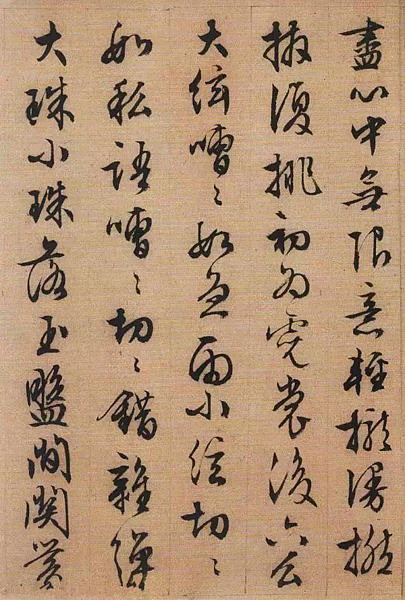 盡心中無限意輕攏慢撚
抹復挑初為霓裳後六么
大絃嘈〻如急雨小絃切〻
如私語嘈〻切〻錯雜彈
大珠小珠落玉盤間關鶯